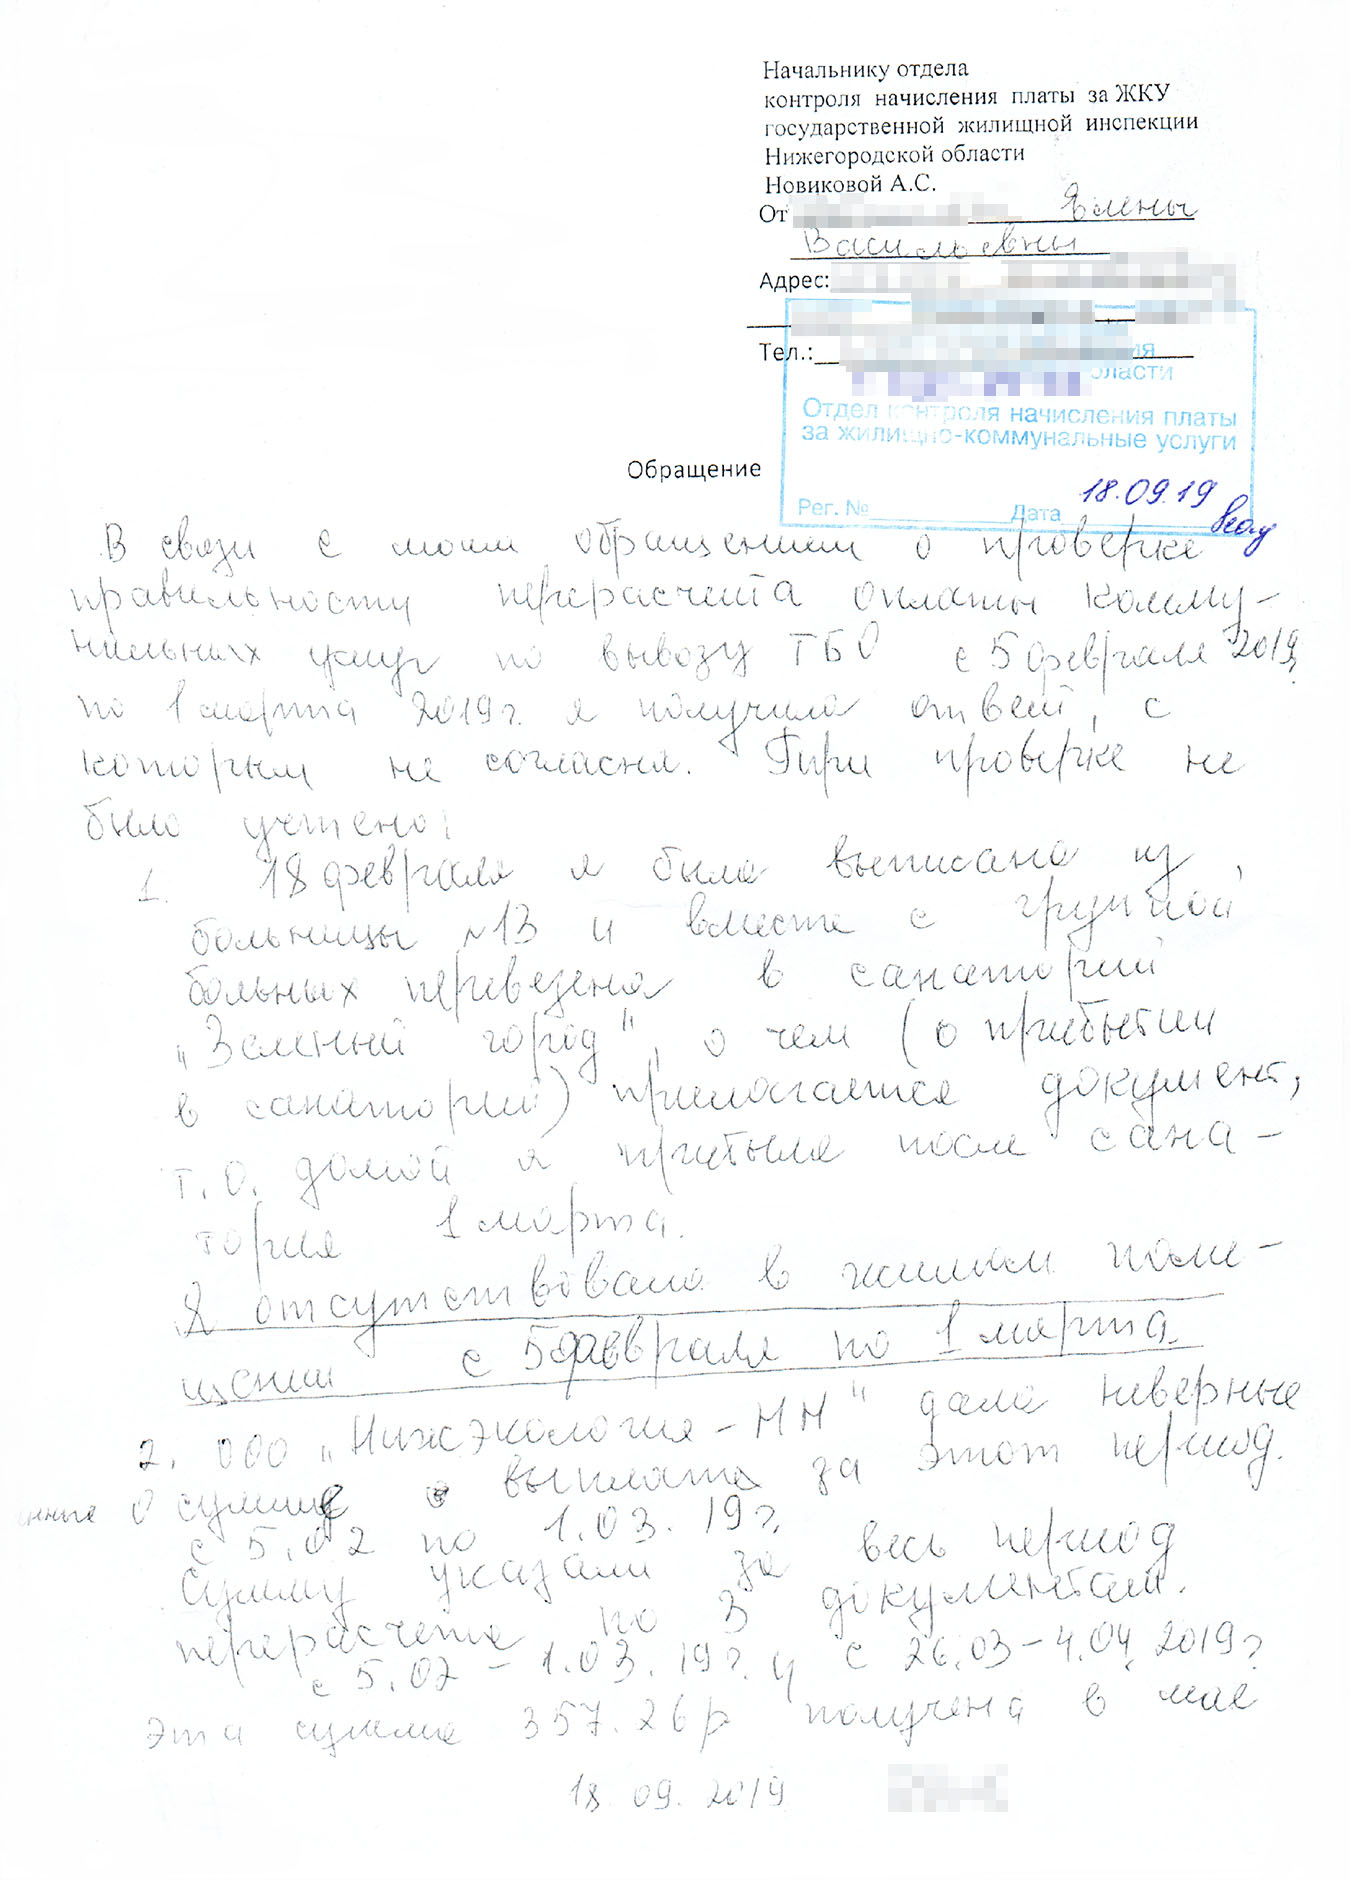 Начальнику отдела
контроля начисления платы за ЖКУ
государственной жилищной инспекции
Нижегородской области
Новиковой А.С.
От Елены
Васильевны
Адрес:
Тел.:
ия
бласти
Отдел контроля начисления платы
за жилищно-коммунальные услуги
Рег. № Дата 18.09.19
Обращение
В связи с моим обращением о проверке
правильности перерасчета оплаты комму-
нальных услуг по вывозу ТБО с 5 февраля 2019
по 1 марта 2019г. я получила ответ, с
которым не согласна. При проверке не
было учтено:
1. 18 февраля я была выписана из
больницы №13 и вместе с группой
больных перевезена в санаторий
„Зеленый город", о чем (о прибытии
в санаторий) прилагается документ,
т.о. домой я прибыла после сана-
тория 1 марта.
Я отсутствовала в жилом поме-
щении с 5 февраля по 1 марта.
2. ООО „Нижэкология-НН" дала неверные
о сумме выплата за этот период.
с 5.02 по 1.03.19г.
Сумму указали за весь период
перерасчета по 3 документам.
с 5.02 - 1.03.19г. и с 26.03-4.04.2019г.
Эта сумма 357.26р получена в мае
18.09.2019